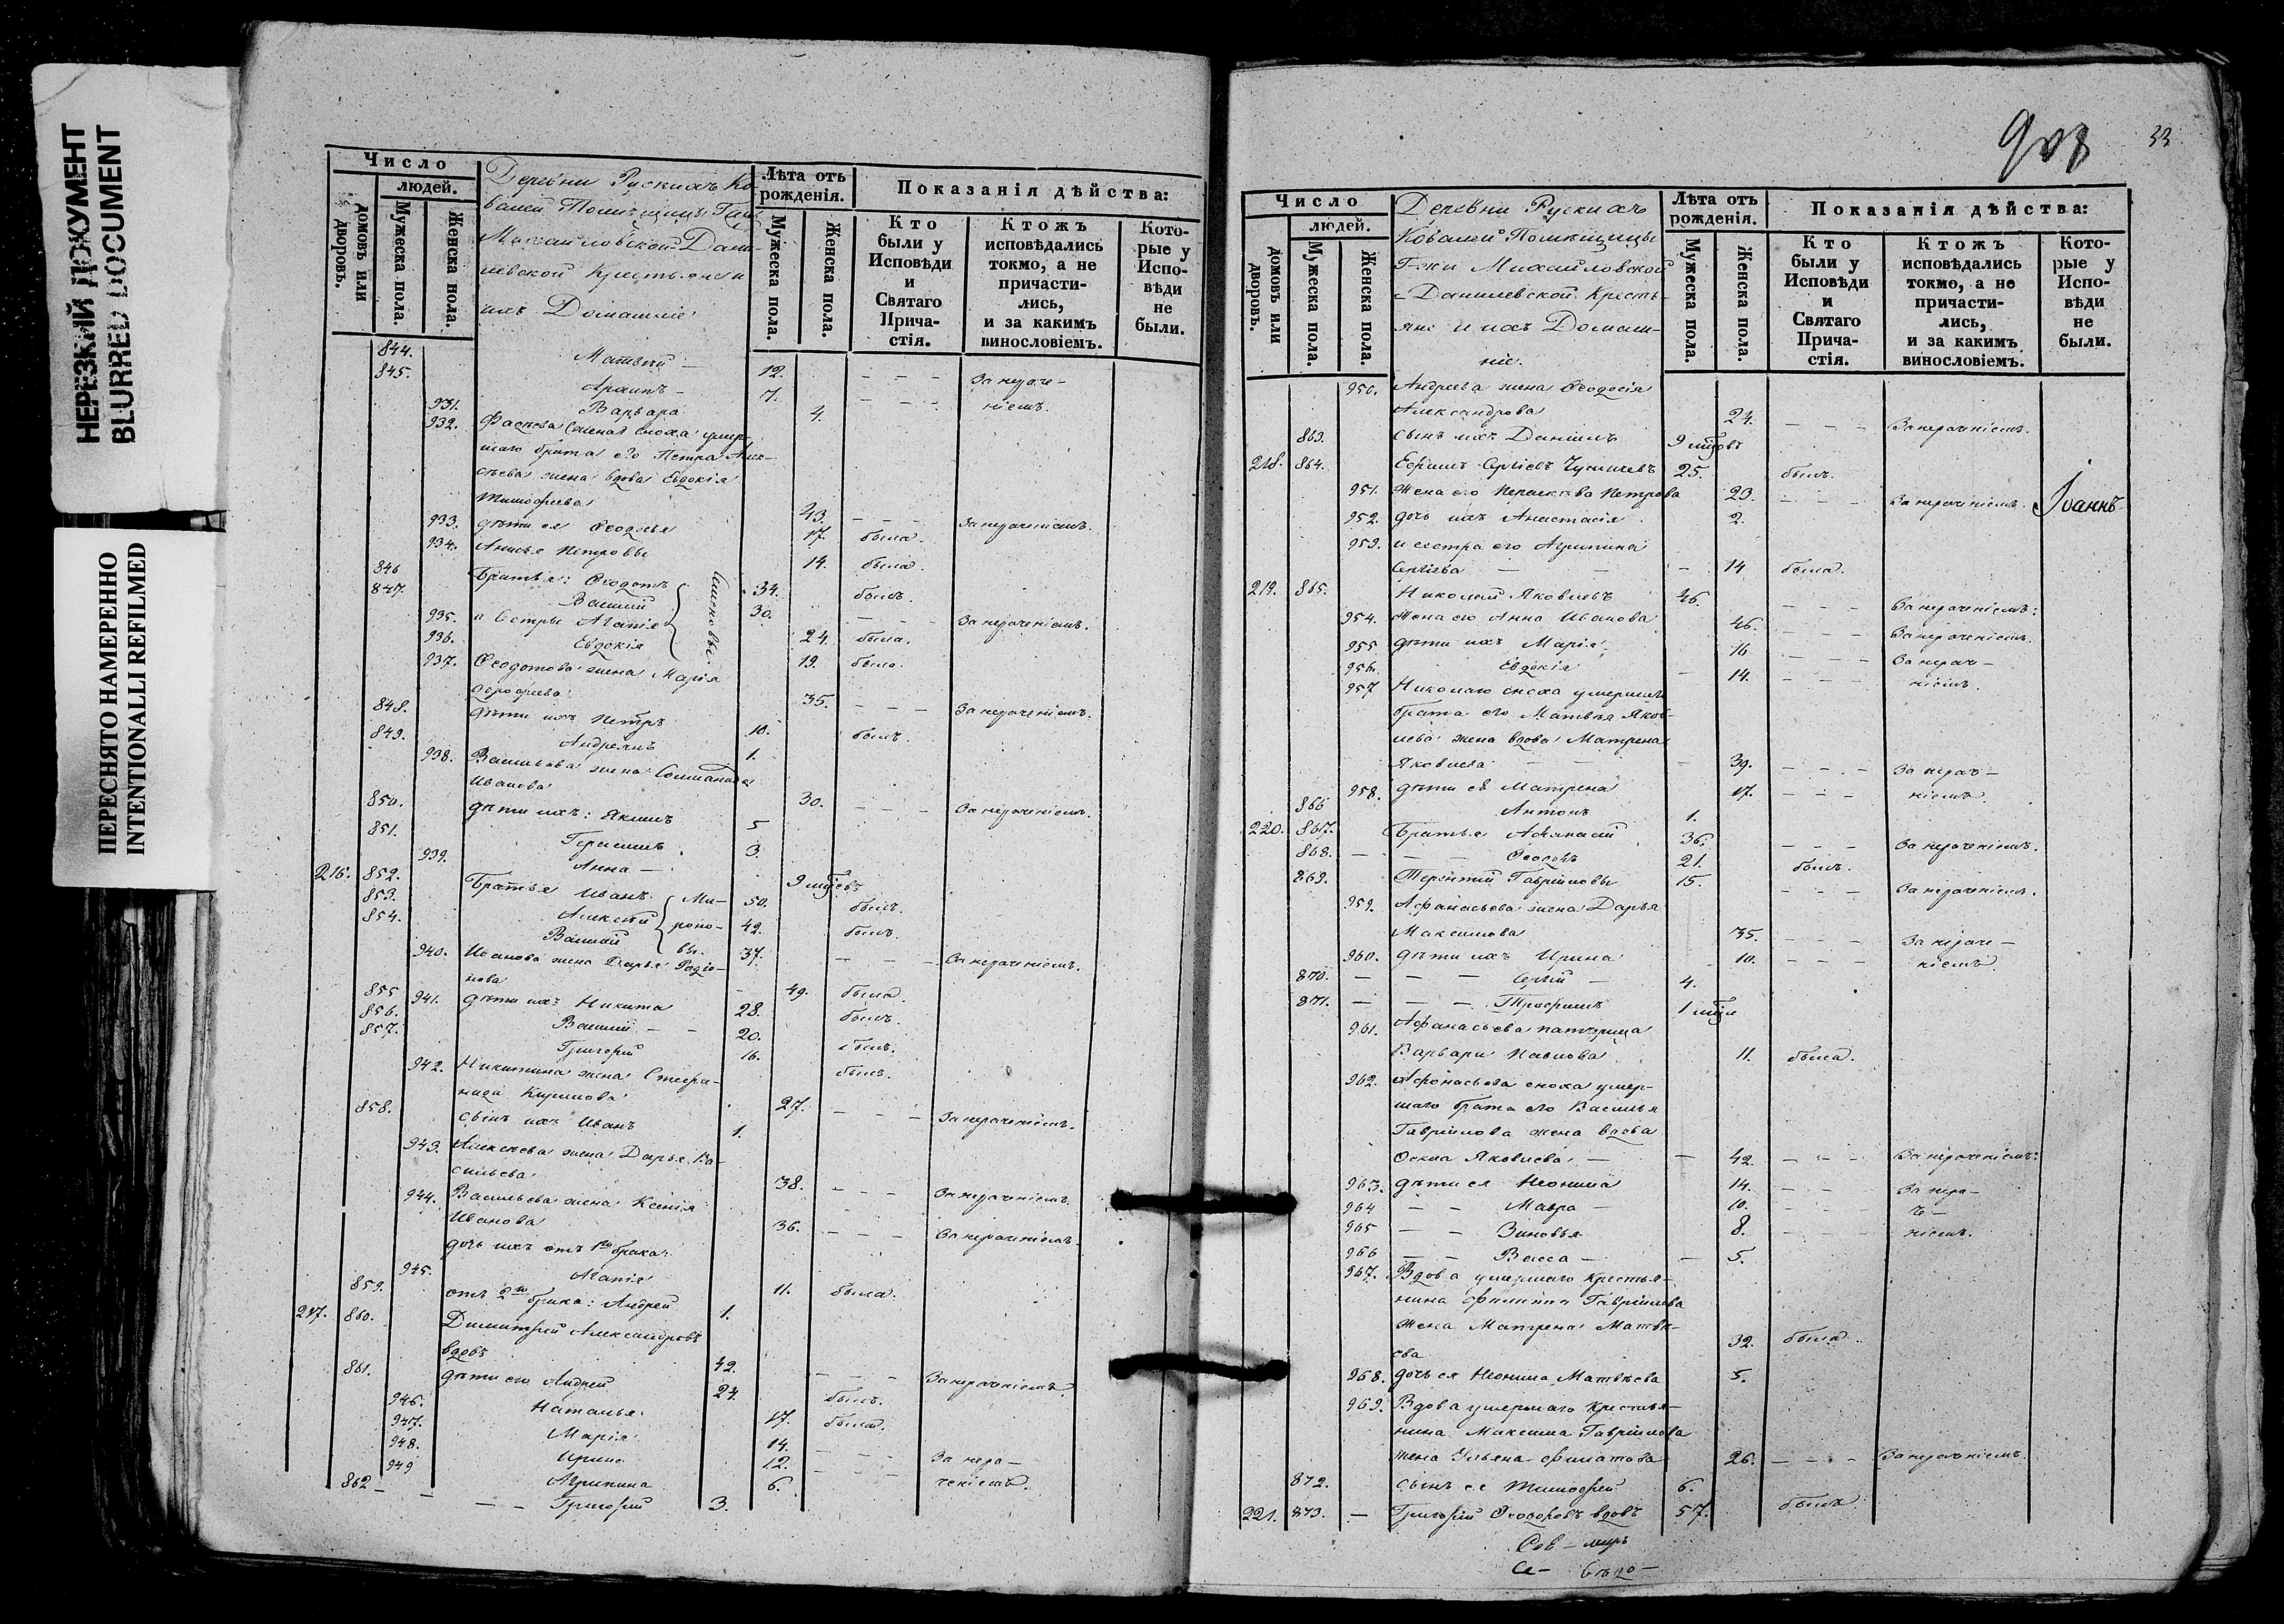 НЕРЕЗКИЙ ДОКУМЕНТ
BLURRED DOCUMENT
ПЕРЕСНЯТО НАМЕРЕННО
INTENTIONALLI REFILMED
Число
людей.
домовъ или дворовъ.
Мужеска пола.
Женска пола.
Деревни Рускихъ Ко-
валей Помѣщицы Г-жи
Михайловской-Дани-
левской Крестьяне и
ихъ Домашніе
Лѣта отъ рожденія.
Мужеска пола.
Женска пола.
Показанія дѣйства:
Кто были у Исповѣди и Святаго Прича-стія.
Ктожъ исповѣдались токмо, а не причасти-лись, и за какимъ винословіемъ.
Кото-рые у Испо-вѣди не были.
844. Матвѣй — 12. — — — За нераче-
845. 7. — — — ніемъ.
931. Варвара 4.
932. сноха умер-
шаго брата его Петра Але-
ксѣева жена вдова Евдокія
Тимофеева 43. — — — За нераченіемъ.
933. дѣти ея Ѳеодосья 17. была.
934. Анисья Петровы 14. была.
846 Братья: Ѳеодотъ 34. былъ.
847. Василій 30. — — — За нераченіемъ.
935. и Сестры Агапія 24. была.
936. Евдокія 19. была.
937. Ѳеодотова жена Марія
35. — — — За нераченіемъ.
848. дѣти ихъ Петръ 10. былъ.
849. Андреянъ 1.
938. Васильева жена
Иванова 30. — — — За нераченіемъ.
850. дѣти ихъ: Якимъ 5
851. Герасимъ 3.
939. Анна — 9 мѣс.
216. 852. Братья Иванъ Ми- 50. былъ.
853. Алексѣй роно- 42. былъ.
854. Василій вы. 37. — — — За нераченіемъ.
940. Иванова жена Дарья Родіо-
нова 49. была.
855 941. дѣти ихъ Никита 28. былъ.
856. Василій — — 20. былъ.
857. Григорій 16. былъ.
942. Никитина жена Стефа-
нида Кирилова 27. — — — За нераченіемъ.
858. сынъ ихъ Иванъ 1.
943. Алексѣева жена Дарья Ва-
сильева 38. — — — За нераченіемъ.
944. Васильева жена Ксенія
Иванова 36. — — — За нераченіемъ.
дочь ихъ отъ 1го брака
945. Агапія 11. была.
859. отъ 2го брака: Андрей 1.
217. 860. Димитрій Александровъ
вдовъ 42. — — — За нераченіемъ.
861. дѣти его Андрей 24. былъ.
946. Наталья 17. была.
947. Марія 14. — — За нера-
948. Ирина 12. — — ченіемъ.
949 Агрипина 6.
862 — — — — Григорій 3.
908
33
Число
людей.
домовъ или дворовъ.
Мужеска пола.
Женска пола.
Деревни Рускихъ
Ковалей Помѣщицы
Г-жи Михайловской
Данилевской Кресть-
яне и ихъ Домаш-
ніе.
Лѣта отъ рожденія.
Мужеска пола.
Женска пола.
Показанія дѣйства:
Кто были у Исповѣди и Святаго Прича-стія.
Ктожъ исповѣдались токмо, а не причасти-лись, и за какимъ винословіемъ.
Кото-рые у Испо-вѣди не были.
950. Андреева жена Ѳеодосія
Александрова 24. — — — За нераченіемъ.
863. сынъ ихъ Даніилъ 9 мѣс.
218. 864. Ефимъ Сергѣевъ 25. былъ.
951. Жена его Петрова 23. — — — За нераченіемъ. Іоаннъ
952. дочь ихъ Анастасія 2.
953. и сестра его Агрипина
Сергѣева — — — 14 была.
219. 865. Николай Яковлевъ 46. — — — За нераченіемъ:
954. Жена его Анна Иванова 46. — — — За нераченіемъ.
955 дѣти ихъ Марія 16 — — — За нераче-
956. Евдокія — 14. — — — ніемъ.
957 Николаю сноха умершаго
брата его Матвѣя Яков-
лева жена вдова Матрена
Яковлева — — — 39. — — — За нераче-
958. дѣти её Матрена 17. — — — ніемъ.
866 Антонъ 1.
220. 867. Братья Аѳанасій 36. — — — За нераченіемъ.
868. — — — Ѳеодоръ 21. былъ.
869. — Терентій Гавриловы 15. — — — За нераченіемъ.
959. Аѳанасьева жена Дарья
Максимова 35. — — — За нераче-
960. дѣти ихъ Ирина 10. — — — ніемъ.
870. — — — Сергій — 4.
871. — — — Трофимъ 1 мѣс.
961. Аѳанасьева патчерица
Варвара Павлова 11. была.
962. Аѳонасьева сноха умер-
шаго брата его Василья
Гаврилова жена вдова
Яковлева — — 42. — — — За нераченіемъ:
963. дѣти ея Неонила 14. — — За нера-
964 — — Мавра — 10. — — — че-
965 — — Зиновья 8. — — ніемъ.
966 — — Васса — — 5.
967. Вдова умершаго Крестья-
нина Филипа Гаврилова
жена Матрена Матвѣ-
ева 32. была.
968. дочь ея Неонила Матвѣева 5.
969. Вдова умершаго Крестья-
нина Максима Гаврилова
жена Ульяна Филатова 26. — — — За нераченіемъ.
872. сынъ ее Тимофей 6.
221. 873. — Григорій Ѳеодоровъ вдовъ 57. былъ.